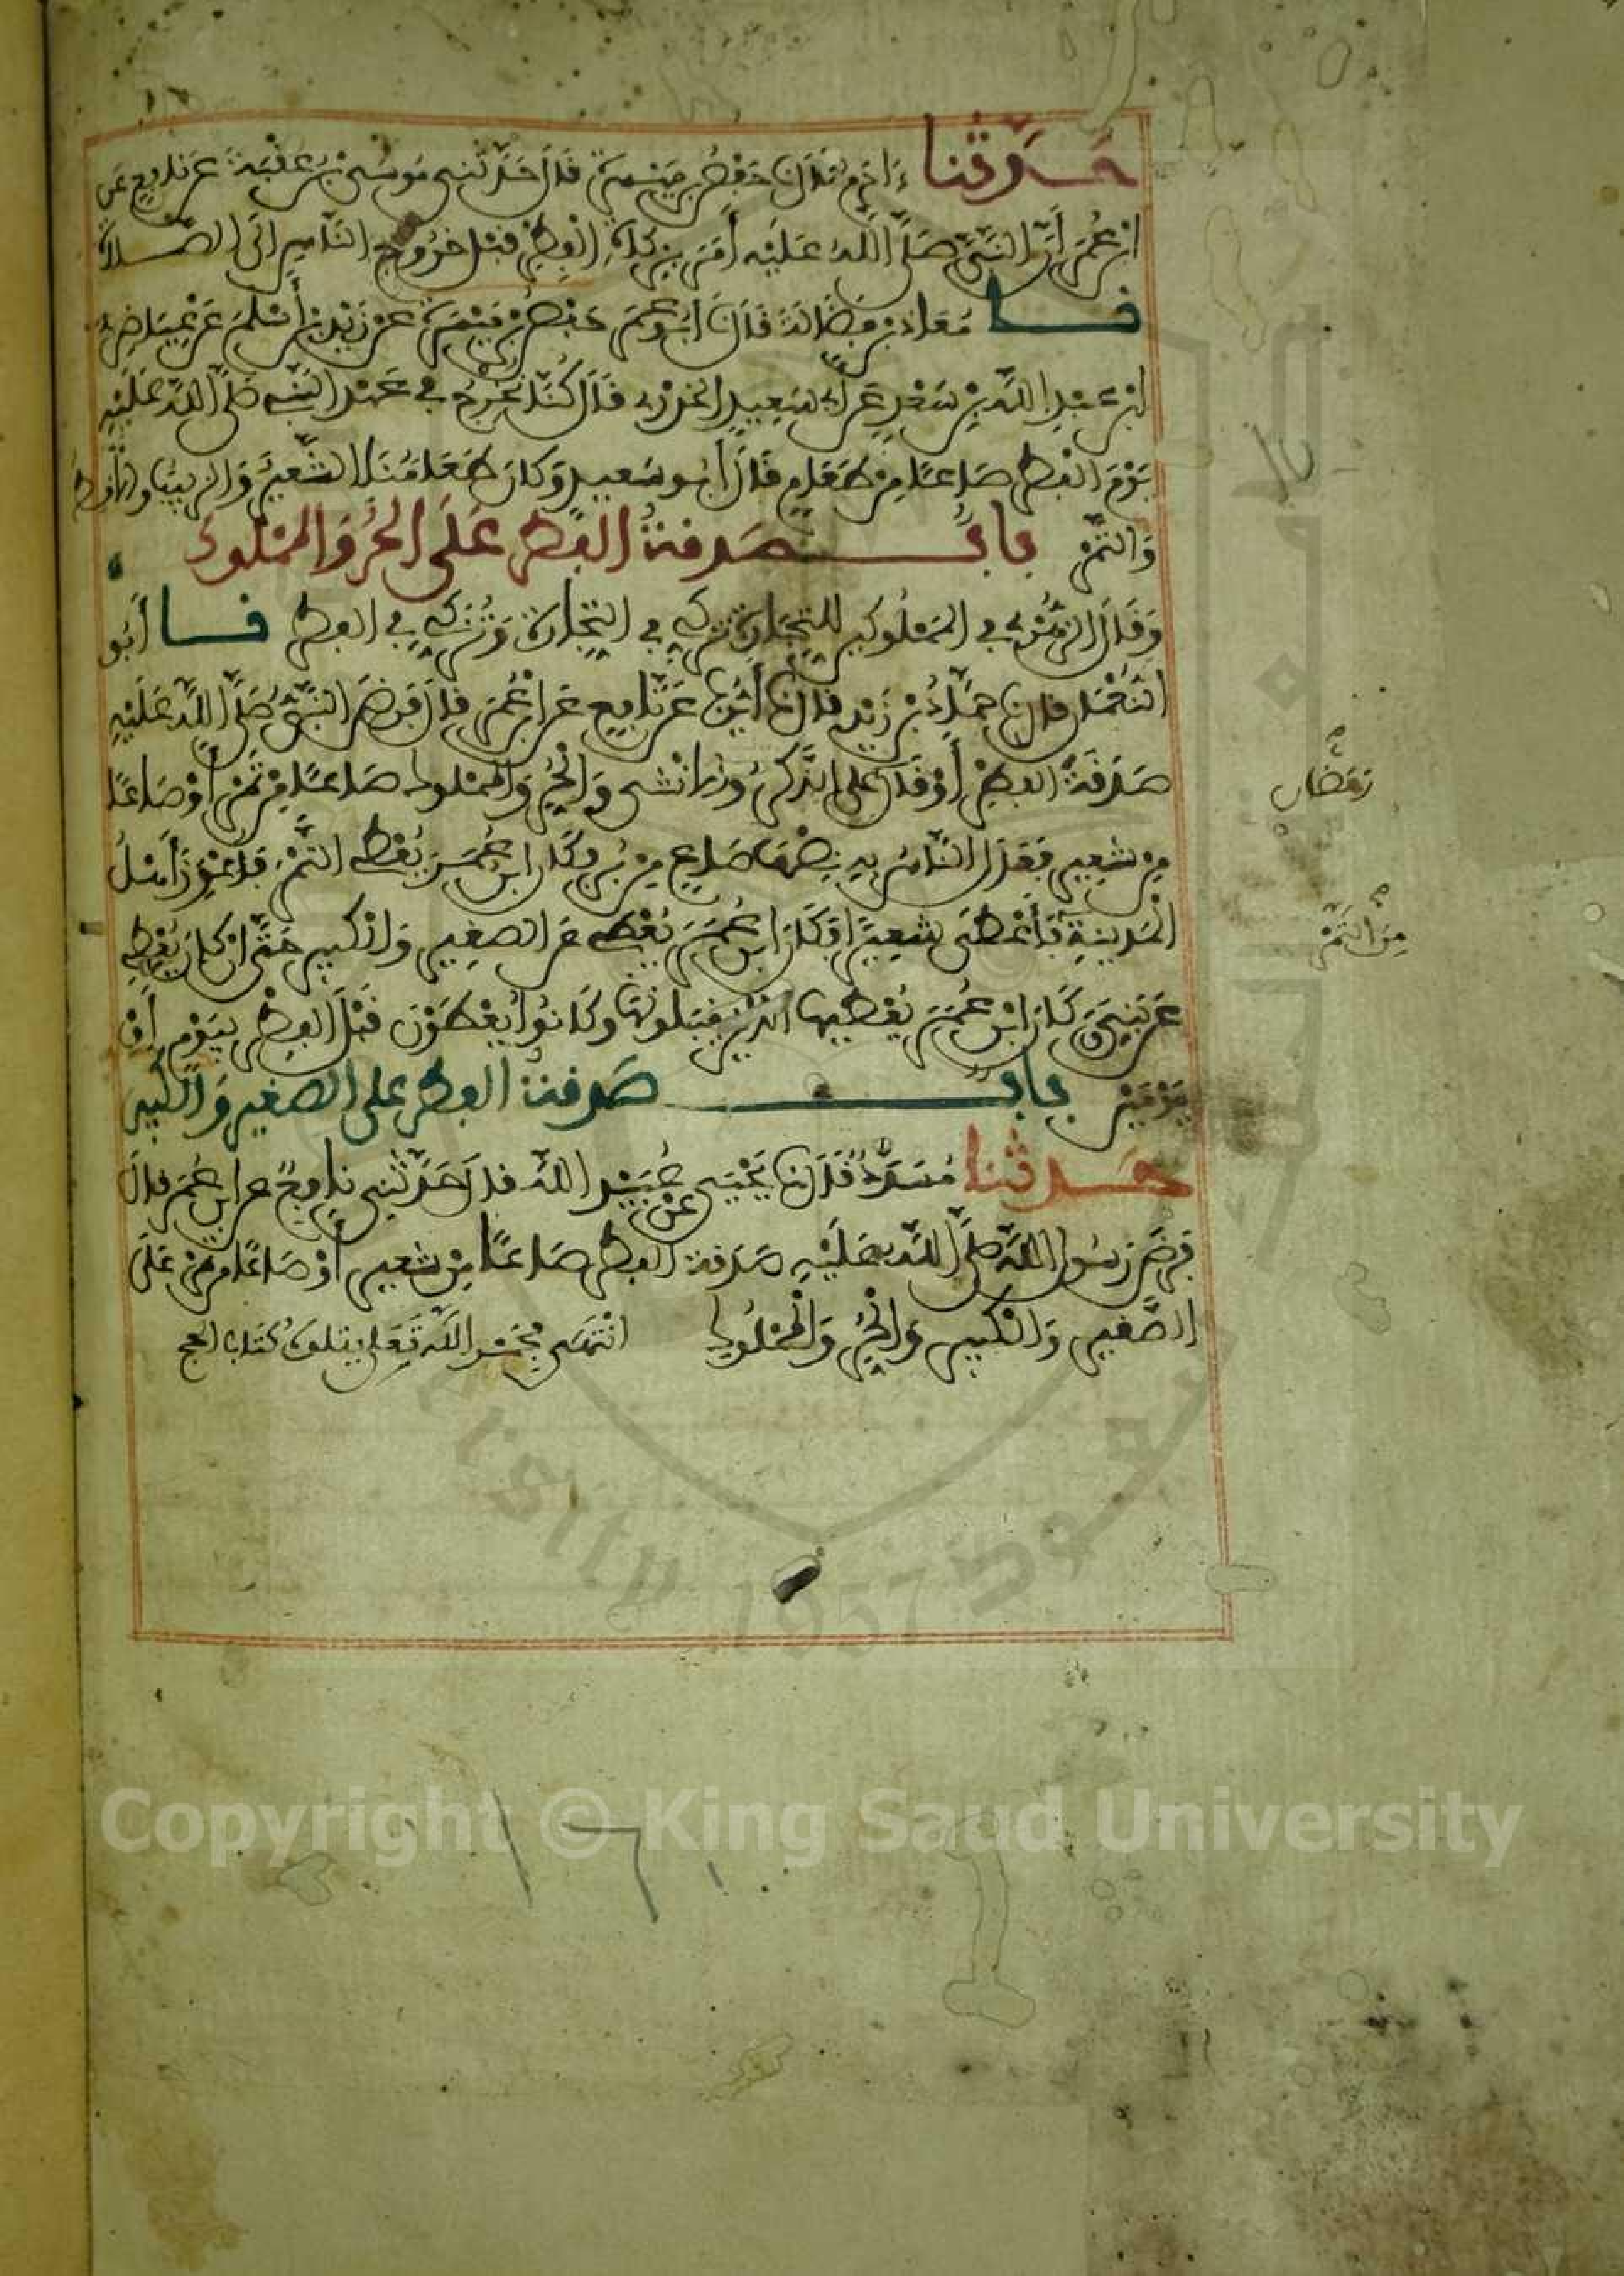 حَدَّثَنَا ءَادَمُ قَالَ نا حَفْصُ بْنُ مَيْسَرَةَ قَالَ حَدَّثَنِي مُوسَى بْنُ عُقْبَةَ عَنْ نَافِعٍ عَنِ
ابْنِ عُمَرَ أَنَّ النَّبِيَّ صَلَّى اللَّهُ عَلَيْهِ أَمَرَ بِزَكَاةِ الْفِطْرِ قَبْلَ خُرُوجِ النَّاسِ إِلَى الصَّلَاةِ
نا مُعَاذُ بْنُ فَضَالَةَ قَالَ نا أَبُو عُمَرَ حَفْصُ بْنُ مَيْسَرَةَ عَنْ زَيْدِ بْنِ أَسْلَمَ عَنْ عِيَاضِ
ابْنِ عَبْدِ اللَّهِ بْنِ سَعْدٍ عَنْ أَبِي سَعِيدٍ الْخُدْرِيِّ قَالَ كُنَّا نُخْرِجُ فِي عَهْدِ النَّبِيِّ صَلَّى اللَّهُ عَلَيْهِ
يَوْمَ الْفِطْرِ صَاعًا مِنْ طَعَامٍ قَالَ أَبُو سَعِيدٍ وَكَانَ طَعَامُنَا الشَّعِيرَ وَالزَّبِيبَ وَالْأَقِطَ
وَالتَّمْرَ بَابُ صَدَقَةِ الْفِطْرِ عَلَى الْحُرِّ وَالْمَمْلُوكِ
وَقَالَ الزُّهْرِيُّ فِي الْمَمْلُوكِينَ لِلتِّجَارَةِ تُزَكَّى فِي التِّجَارَةِ وَتُزَكَّى فِي الْفِطْرِ نا أَبُو
النُّعْمَانِ قَالَ نا حَمَّادُ بْنُ زَيْدٍ قَالَ نا أَيُّوبُ عَنْ نَافِعٍ عَنِ ابْنِ عُمَرَ قَالَ فَرَضَ النَّبِيُّ صَلَّى اللَّهُ عَلَيْهِ
صَدَقَةَ الْفِطْرِ أَوْ قَالَ عَلَى الذَّكَرِ وَالْأُنْثَى وَالْحُرِّ وَالْمَمْلُوكِ صَاعًا مِنْ تَمْرٍ أَوْ صَاعًا
رَمَضَانَ
مِنْ شَعِيرٍ فَعَدَلَ النَّاسُ بِهِ نِصْفَ صَاعٍ مِنْ بُرٍّ فَكَانَ ابْنُ عُمَرَ يُعْطِي التَّمْرَ فَأَعْوَزَ أَهْلُ
الْمَدِينَةِ فَأَعْطَى شَعِيرًا فَكَانَ ابْنُ عُمَرَ يُعْطِي عَنِ الصَّغِيرِ وَالْكَبِيرِ حَتَّى إِنْ كَانَ يُعْطِي
مِنَ التَّمْرِ
عَنْ بَنِيَّ وَكَانَ ابْنُ عُمَرَ يُعْطِيهَا الَّذِينَ يَقْبَلُونَهَا وَكَانُوا يُعْطُونَ قَبْلَ الْفِطْرِ بِيَوْمٍ أَوْ
يَوْمَيْنِ بَابُ صَدَقَةِ الْفِطْرِ عَلَى الصَّغِيرِ وَالْكَبِيرِ
حَدَّثَنَا مُسَدَّدٌ قَالَ نا يَحْيَى عَنْ عُبَيْدِ اللَّهِ قَالَ حَدَّثَنِي نَافِعٌ عَنِ ابْنِ عُمَرَ قَالَ
فَرَضَ رَسُولُ اللَّهِ صَلَّى اللَّهُ عَلَيْهِ صَدَقَةَ الْفِطْرِ صَاعًا مِنْ شَعِيرٍ أَوْ صَاعًا مِنْ تَمْرٍ عَلَى
الصَّغِيرِ وَالْكَبِيرِ وَالْحُرِّ وَالْمَمْلُوكِ انْتَهَى بِحَمْدِ اللَّهِ تَعَالَى يَتْلُوهُ كِتَابُ الْحَجِّ
Copyright © King Saud University